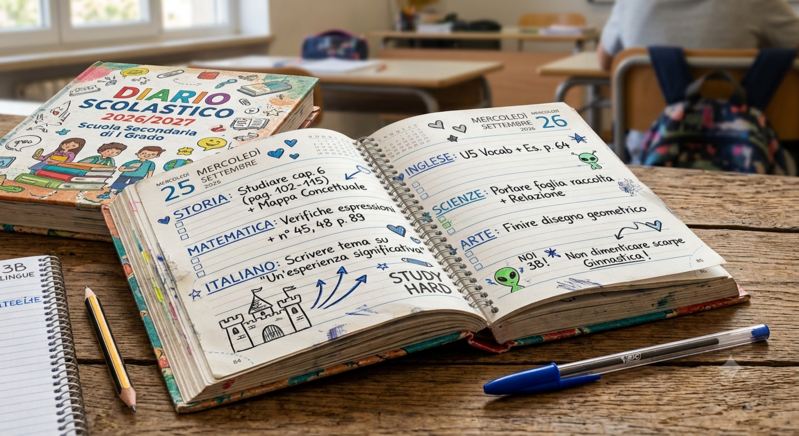 DIARIO
SCOLASTICO
2026/2027
Scuola Secondaria
di I Grado
25 MERCOLEDÌ
SETTEMBRE
2025
STORIA: Studiare cap. 6
(pag. 102-115)
+ Mappa Concettuale
MATEMATICA: Verifiche espression
+ n° 45, 48 p. 89
ITALIANO: Scrivere tema su
"Un'esperienza significativa"
STUDY
HARD
84
MERCOLEDÌ
SETTEMBRE
2026
MERCOLEDÌ
26
INGLESE: U5 Vocab + Es. p. 64
SCIENZE: Portare foglia raccolta
+ Relazione
ARTE: Finire disegno geometrico
NOI
3B!
Non dimenticare scarpe
Ginnastica!
3B
LINGUE
BIC